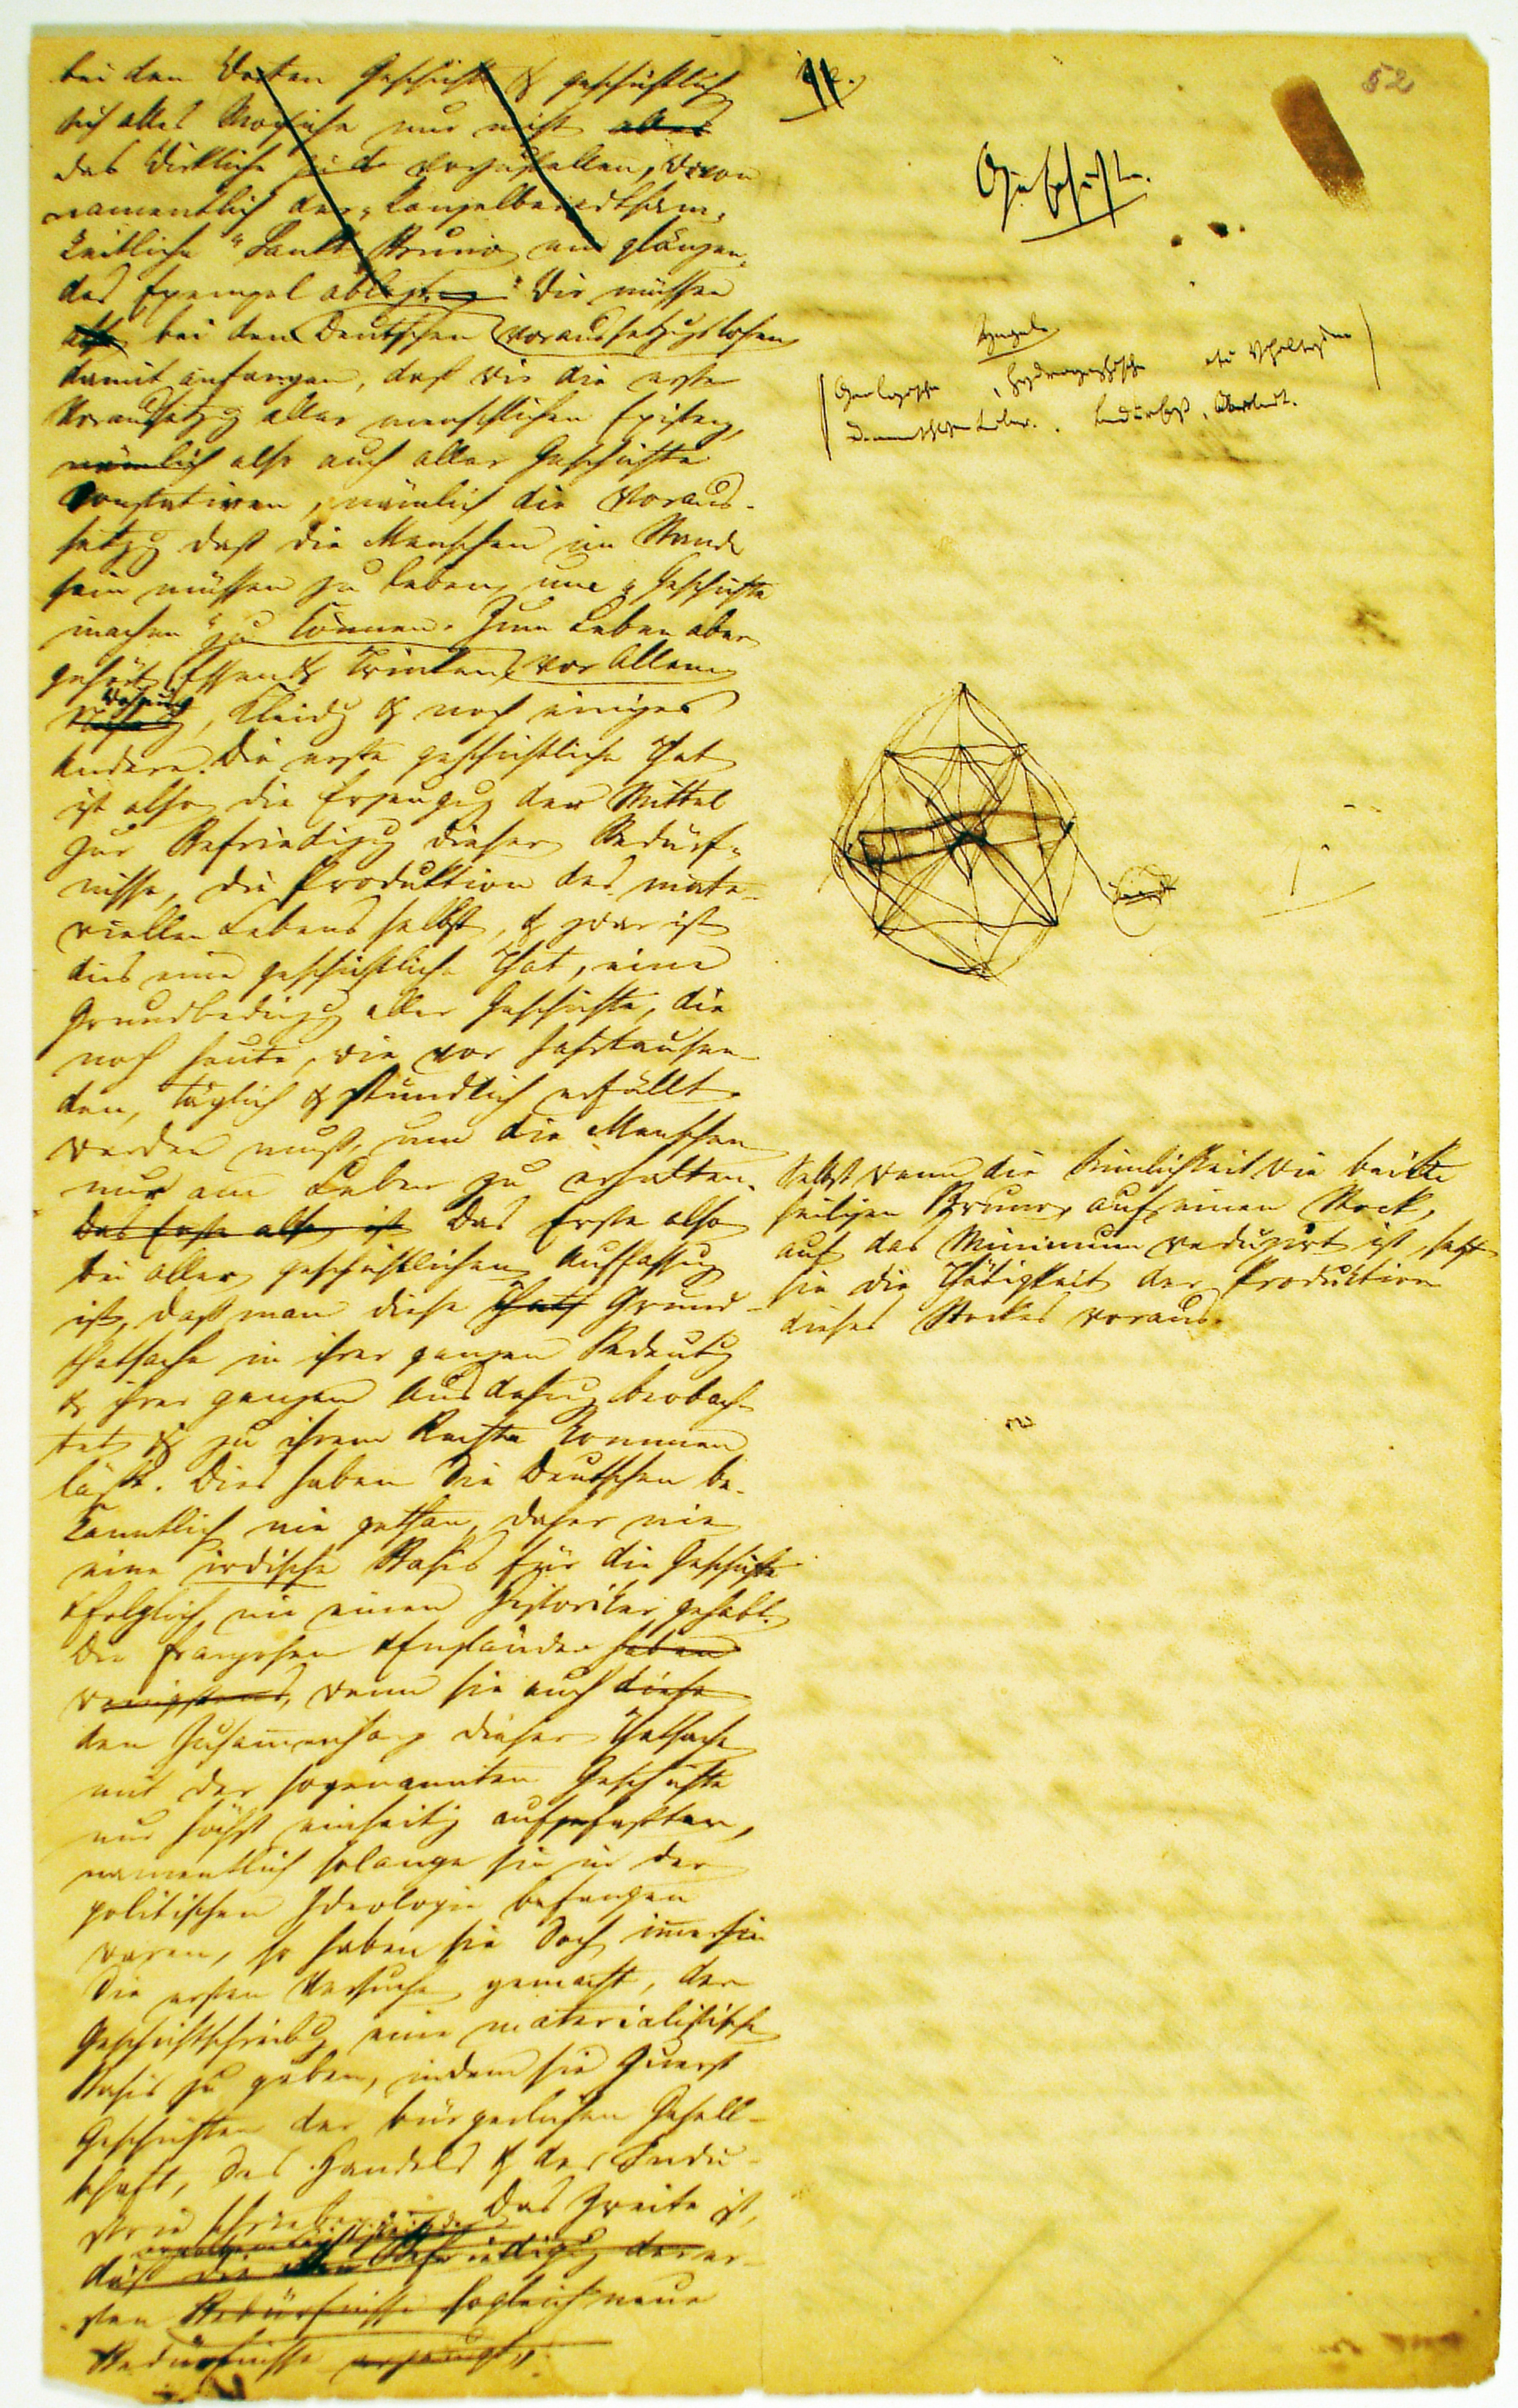 bei den Worten Geschichte & geschichtlich
sich alles Mögliche nur nicht alles
das Wirkliche vorzustellen, wovon
namentlich der „kanzelberedtsam-
keitliche“ Sankt Bruno ein glänzen-
des Exempel ablegt. Wir müssen
also bei den Deutschen voraussetzungslosen
damit anfangen, daß wir die erste
Voraussetzg aller menschlichen Existenz,
nämlich also auch aller Geschichte
konstatiren, nämlich die Voraus-
setzg daß die Menschen im Stande
sein müssen zu leben, um „Geschichte
machen“ zu können. Zum Leben aber
gehört Essen & Trinken, vor Allem
Wohnung, Kleidg & noch einiges
Andere. Die erste geschichtliche That
ist also die Erzeugung der Mittel
zur Befriedigg dieser Bedürf-
nisse, die Produktion des mate-
riellen Lebens selbst, & zwar ist
dies eine geschichtliche That, eine
Grundbedingg aller Geschichte, die
noch heute, wie vor Jahrtausen-
den, täglich & stündlich erfüllt
werden muß, um die Menschen
nur am Leben zu erhalten.
Das Erste also ist Das Erste also
bei aller geschichtlichen Auffassung
ist, daß man diese That Grund-
thatsache in ihrer ganzen Bedeutg
& ihrer ganzen Ausdehnung beobach-
tet & zu ihrem Rechte kommen
läßt. Dies haben die Deutschen be-
kanntlich nie gethan, daher nie
eine irdische Basis für die Geschichte
& folglich nie einen Historiker gehabt.
Die Franzosen & Engländer haben
wenigstens, wenn sie auch diese
den Zusammenhang dieser Thatsache
mit der sogenannten Geschichte
nur höchst einseitig auffaßten,
namentlich solange sie in der
politischen Ideologie befangen
waren, so haben sie doch immerhin
die ersten Versuche gemacht, der
Geschichtschreibg eine materialistische
Basis zu geben, indem sie zuerst
Geschichten der bürgerlichen Gesell-
schaft, des Handels & der Indu-
strie schrieben. Das Zweite ist,
daß die Befriedigg der er-
sten Bedürfnisse sogleich neue
Bedürfnisse erzeugt,
11
52
Geschichte.
Hegel.
Geologische, hydrographische etc Verhältnisse
Die menschlichen Leiber. Bedürfniß, Arbeit.
Selbst wenn die Sinnlichkeit wie beim
heiligen Bruno, auf einen Stock,
auf das Minimum reduzirt ist, setzt
sie die Thätigkeit der Produktion
dieses Stockes voraus.